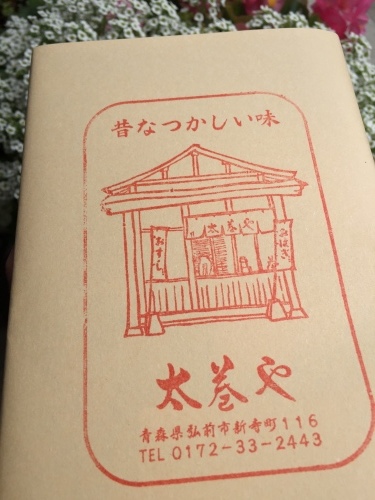 昔なつかしい味
太巻や
おすし
おはぎ
太巻や
青森県弘前市新寺町116
TEL 0172-33-2443